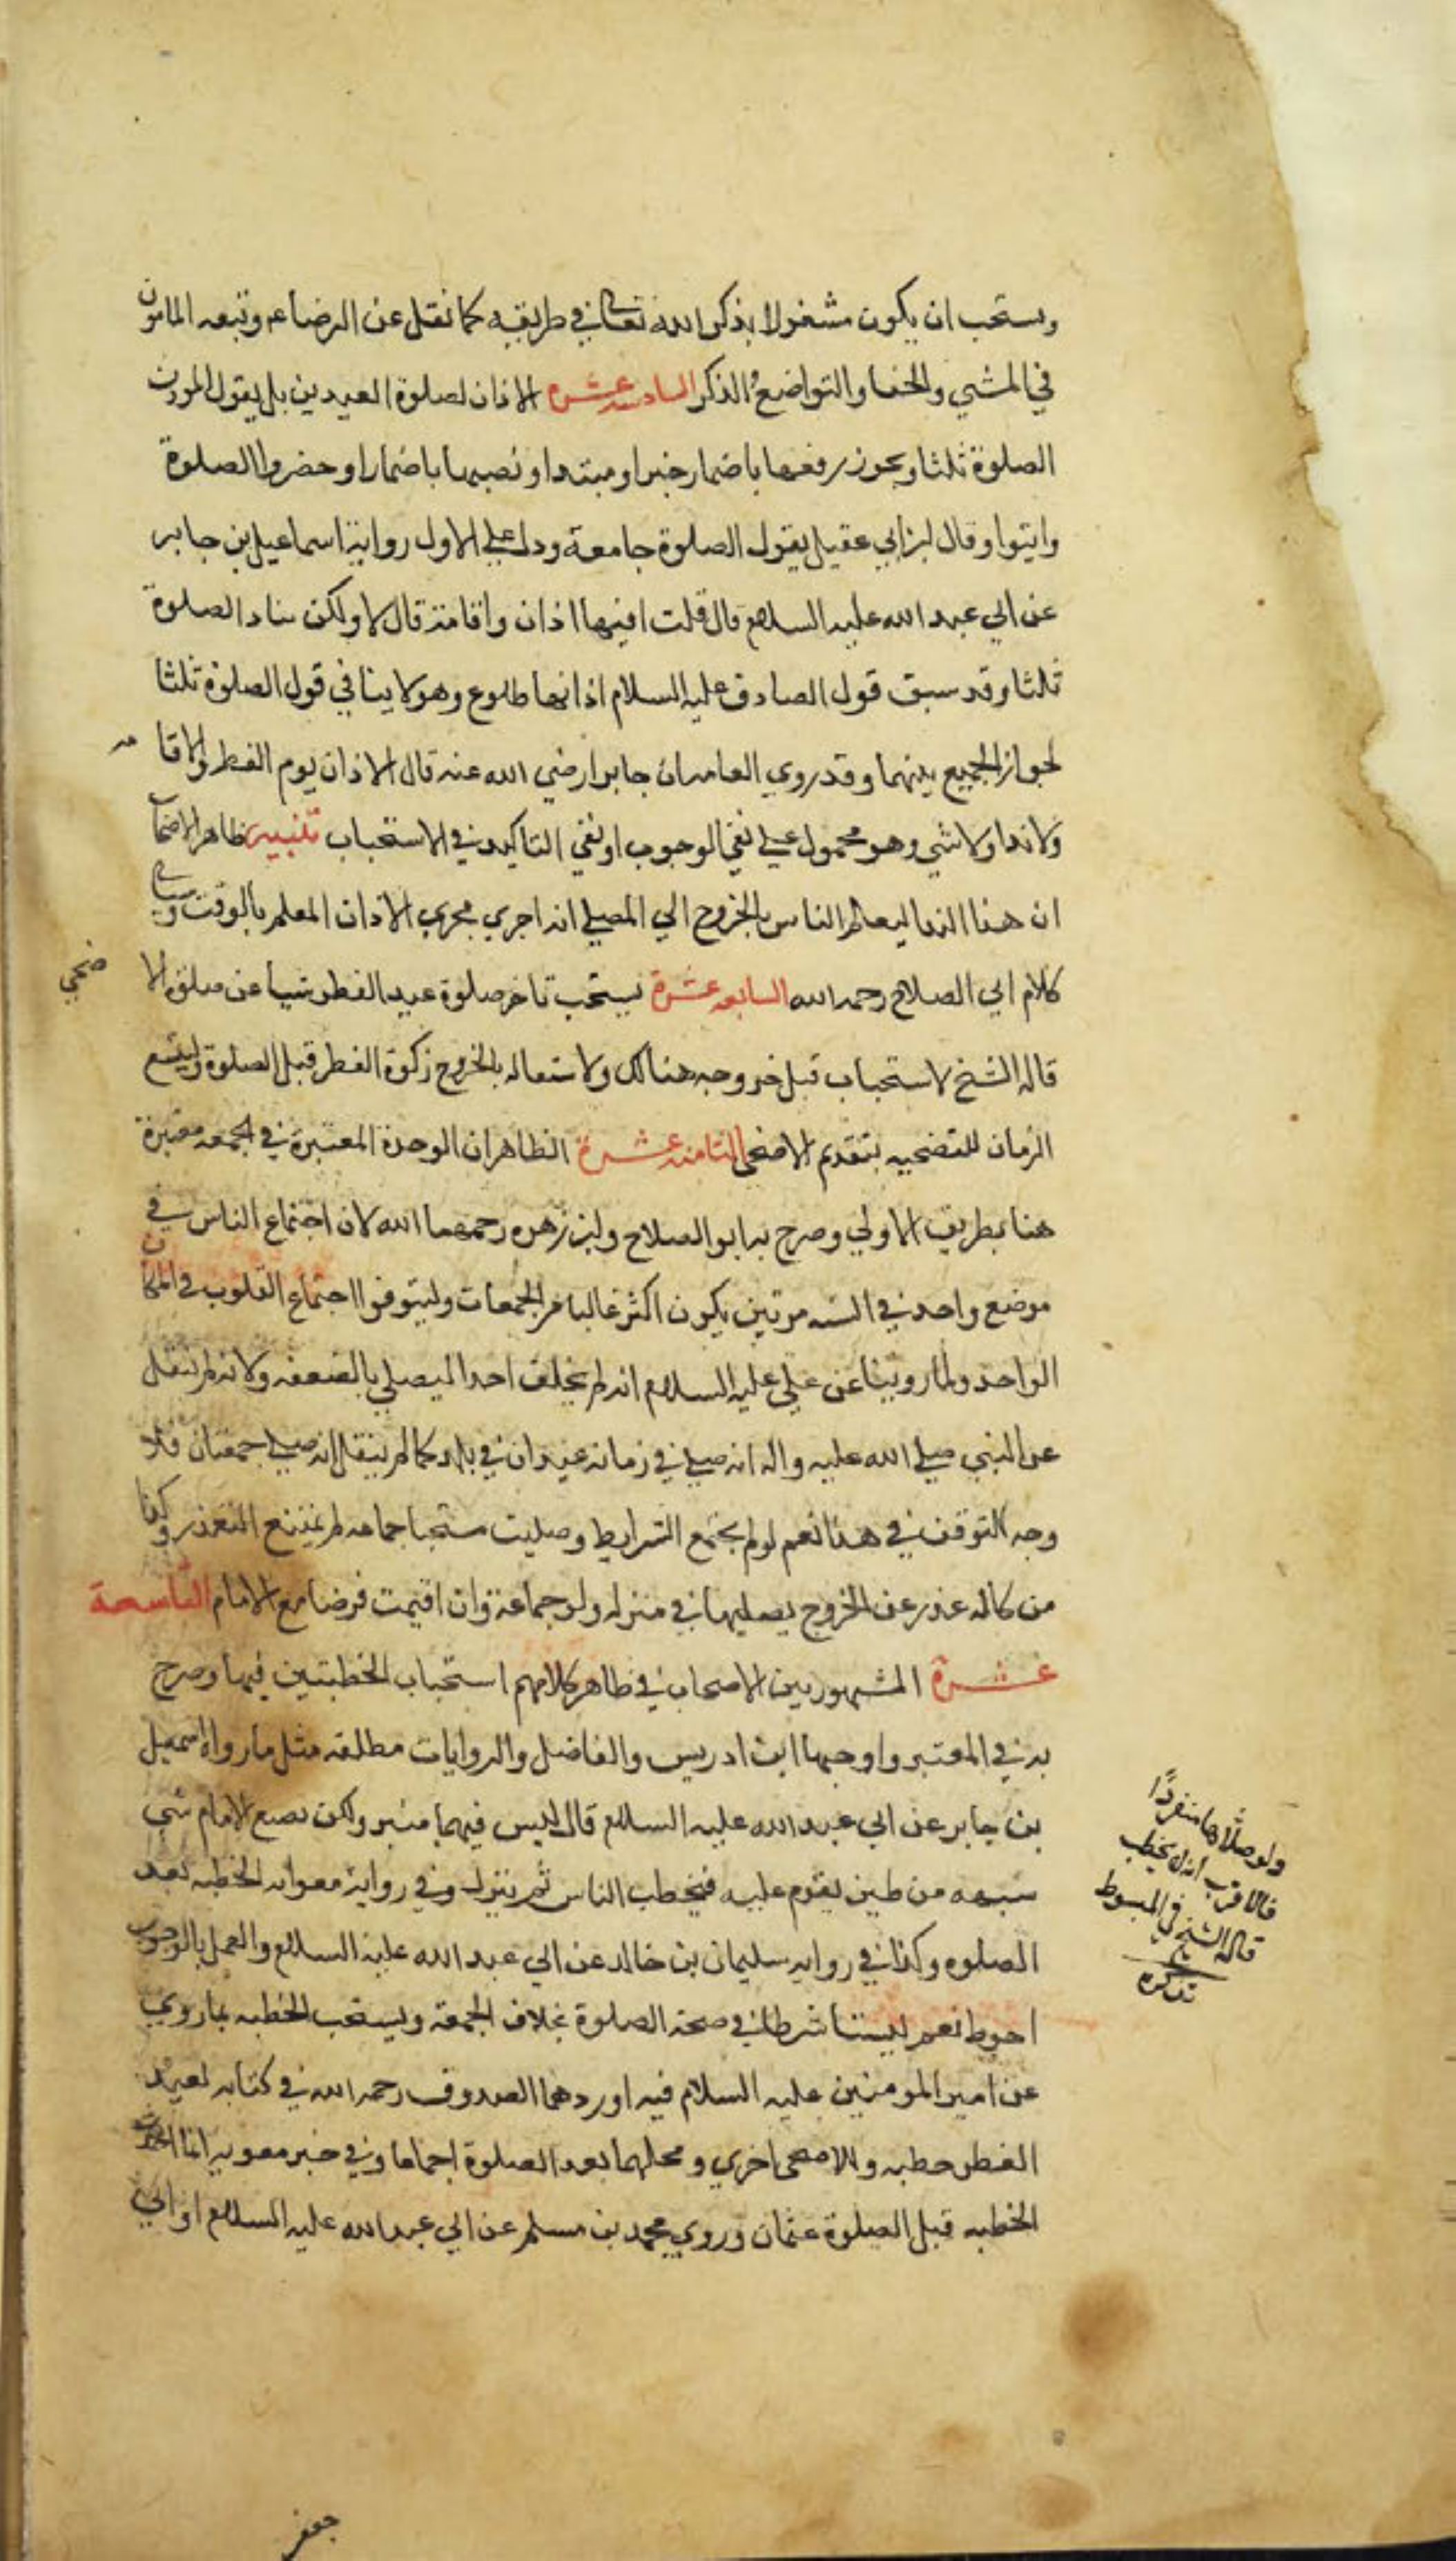 ويستحب ان يكون مشغولا بذكر الله تعالى في طريقه كما نقل عن الرضا ع م وتبعه المامون
في المشي والحفا والتواضع والذكر السادسه عشره لا اذان لصلوة العيدين بل يقول الموذن
الصلوة ثلثا ويجوز رفعها باضمار خبر او مبتدا ونصبها باضمار احضروا الصلوة
وايتوا وقال ابن ابي عقيل يقول الصلوة جامعة ودل على الاول رواية اسماعيل بن جابر
عن ابي عبد الله عليه السلام قال قلت افيها اذان واقامة قال لا ولكن يناد الصلوة
ثلثا وقد سبق قول الصادق عليه السلام اذانها طلوع وهو لا ينافي قول الصلوة ثلثا
لجواز الجمع بينهما وقد روي العامه ان جابرا رضي الله عنه قال لا اذان يوم الفطر ولا اقا مه
ولا ندا ولا شي وهو محمول على نفي الوجوب او نفي التاكيد في الاستحباب تنبيه ظاهر الاصحاب
ان هذا الندا ليعلم الناس بالخروج الي المصلي انه اجري مجري الاذان المعلم بالوقت
كلام ابي الصلاح رحمه الله السابعه عشرة يستحب تاخر صلوة عيد الفطر شيا عن صلوة الا ضحي
قاله الشيخ لاستحباب قبل خروجه هناك ولاشتغاله بالخروج زكوة الفطر قبل الصلوة وليتسع
الزمان للتضحيه بتقديم الاضحى الثامنه عشرة الظاهر ان الوحدة المعتبرة في الجمعه معتبرة
هنا بطريق الاولي وصرح به ابو الصلاح وابن زهره رحمهما الله لان اجتماع الناس في
موضع واحد في السنه مرتين يكون اكثر غالبا من الجمعات وليتوفوا اجتماع القلوب في المكان
الواحد ولما روينا عن علي عليه السلام انه لم يخلف احدا ليصلي بالضعفه ولانه لم ينقل
عن النبي صلى الله عليه واله انه صلى في زمانه عيدان في بلد كما لم ينقل انه صلى جمعتان فلا
وجه التوقف في هذا نعم لو لم يجتمع الشرايط وصليت مستحبا جماعه لم يمتنع التعدد وكذا
من كان له عذر عن الخروج يصليها في منزله ولو جماعة وان اقيمت فرضا مع الامام التاسعة
عشرة المشهور بين الاصحاب في ظاهر كلامهم استحباب الخطبتين فيها وصرح
به في المعتبر واوجبها ابن ادريس والفاضل والروايات مطلقه مثل ما رواه اسمعيل
بن جابر عن ابي عبد الله عليه السلام قال ليس فيهما منبر ولكن يصنع الامام شي
شبهه من طين يقوم عليه فيخطب الناس ثم ينزل وفي رواية معوانه الخطبه بعد
الصلوه وكذا في روايه سليمان بن خالد عن ابي عبد الله عليه السلام والعمل بالوجوب
احوط نعم ليستا شرطا في صحة الصلوة بخلاف الجمعه ويستحب الخطبه بما روي
عن امير المومنين عليه السلام فيه اوردهما الصدوق رحمه الله في كتابه لعيد
الفطر خطبه وللاضحى اخري ومحلها بعد الصلوة اجماعا وفي خبر معويه انما احدث
الخطبه قبل الصلوة عثمان وروي محمد بن مسلم عن ابي عبد الله عليه السلام او ابي
ولو صلاها منفردًا
فالاقرب انه لا يخطب
قاله الشيخ في المبسوط
تذكره
جعفر